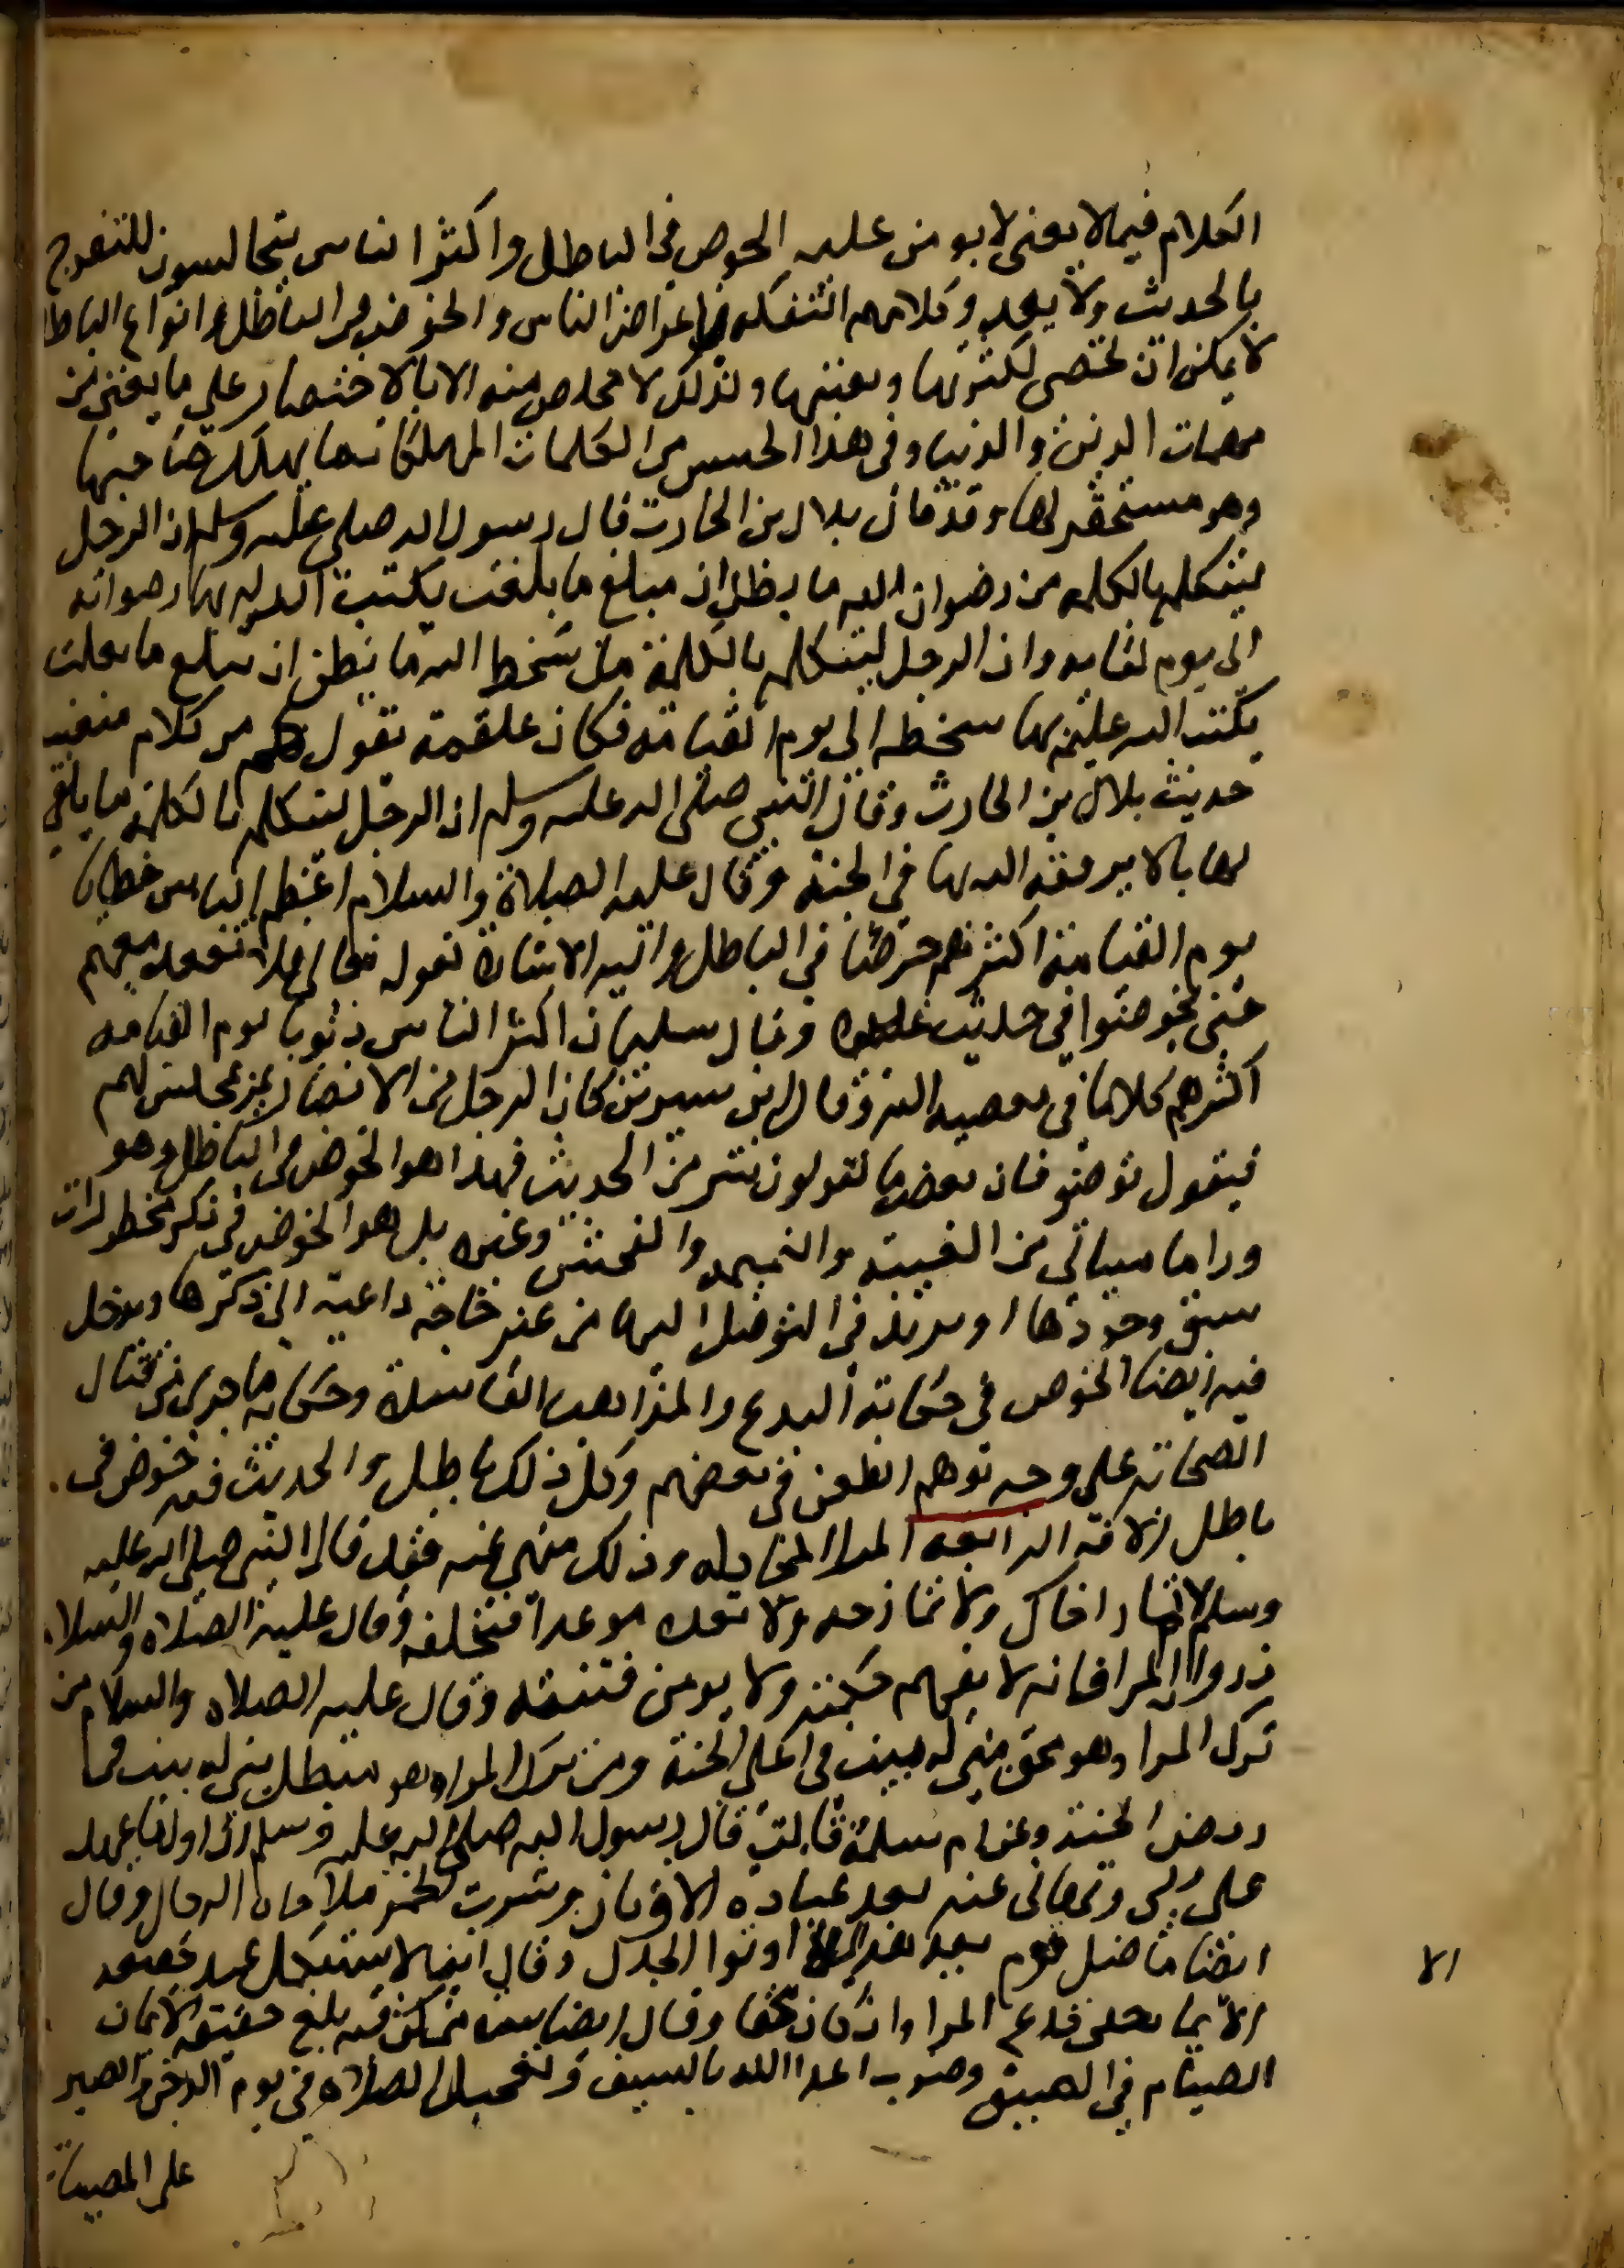 الكلام فيما لا يعنى لا يومن عليه الخوض فى الباطل واكثر الناس يتجالسون للتفرج
بالحديث ولا يعدو كلامهم التفكه باعراض الناس والخوض فى الباطل وانواع الباطل
لا يمكن ان تحصى لكثرتها وتفننها ولذلك لا مخلص منه الا بالاختصار على ما يعنى من
مهمات الدين والدنيا وفى هذا الجنس من الكلمات المهلكات ما يهلك صاحبها
وهو مستحقر لها وقد قال بلال بن الحارث قال رسول الله صلى عليه وسلم ان الرجل
ليتكلم بالكلمه من رضوان الله ما يظن ان مبلغ ما بلغت يكتب الله له بها رضوانه
الى يوم لقايه وان الرجل ليتكلم بالكلمة من سخط الله ما يظن ان تبلغ ما بلغت
يكتب الله عليه بها سخطه الى يوم القيامه فكان علقمة يقول كم من كلام منعنيه
حديث بلال بن الحارث وقال النبى صلى الله عليه وسلم ان الرجل ليتكلم بالكلمة ما يلقى
لها بالا يرفعه الله بها فى الجنة وقال عليه الصلاة والسلام اعظم الناس خطايا
يوم القيامة اكثرهم خوضا فى الباطل واليه الاشارة بقوله تعالى فلا تقعدوا معهم
حتى يخوضوا فى حديث غيره وقال سليمان اكثر الناس ذنوبا يوم القيامه
اكثرهم كلاما فى معصيه الله وقال ابن سيرين كان الرجل من الانصار يمر بمجلس لهم
فيقول توضئو فان بعض ما تقولون شر من الحديث فهذا هو الخوض فى الباطل وهو
ورا ما سياتى من الغيبة والنميمه والفحش وغيره بل هو الخوض فى ذكر محظورات
سبق وجودها او تدبر فى التوصل اليها من غير حاجة داعية الى ذكرها ويدخل
فيه ايضا الخوض فى حكاية البدع والمذاهب الفاسدة وحكاية ما جرى من قتال
الصحابه على وجه يوهم الطعن فى بعضهم وكل ذلك باطل والحديث فيه خوض فى
باطل الافة الرابعه المرا المجادله وذلك منهى عنه فقد قال النبى صلى الله عليه
وسلم لا تمار اخاك ولا تمازحه ولا تعده موعدا فتخلفه وقال عليه الصلاه والسلام
ذروا المرا فانه لا يفهم حكمته ولا يومن فتنته وقال عليه الصلاه والسلام من
ترك المرا وهو محق بنى له بيت فى اعلى الجنة ومن ترك المراء وهو مبطل بنى له بيت فى
ربض الجنة وعن ام سلمة قالت قال رسول الله صلى الله عليه وسلم ان اول ما عهد
على ربى ونهانى عنه بعد عبادة الاوثان وشرب الخمر ملاحاه الرجال وقال
ايضا ما ضل قوم بعد اوتوا الجدل وقال ايضا لا يستكمل عبد حقيقه
الايمان حتى يدع المرا وان كان محقا وقال ايضا ست من كن فيه بلغ حقيقة الايمان
الصيام فى الصيف وضرب اعدا الله بالسيف وتعجيل الصلاه فى يوم الدجن والصبر
على المصيبات